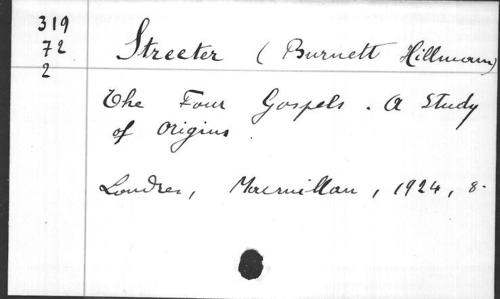 319
72
2
Streeter (Burnett Hillmann)
The Four Gospels. A Study
of origins
Londres, Macmillan, 1924, 8-